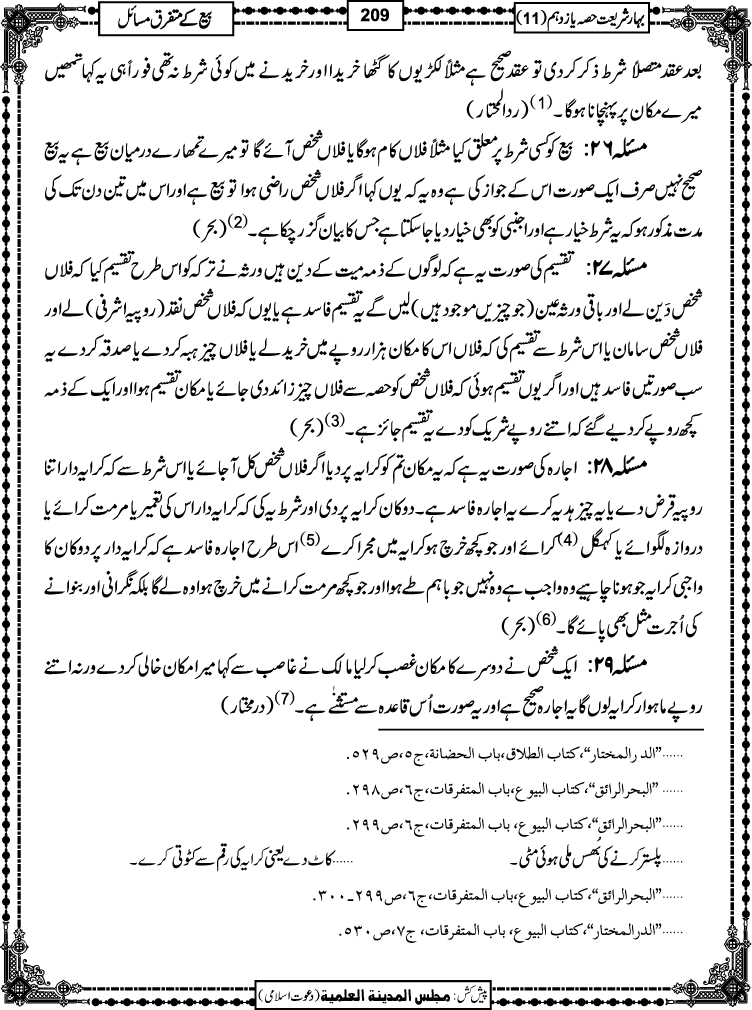 بہارِ شریعت حصہ یازدہم (11)
209
بیع کے متفرق مسائل
بعد عقد متصلاً شرط ذکر کردی تو عقد صحیح ہے مثلاً لکڑیوں کا گٹھا خریدا اور خریدنے میں کوئی شرط نہ تھی فوراً ہی یہ کہا تمھیں
میرے مکان پر پہنچانا ہوگا۔(1) (ردالمحتار)
مسئلہ ۲۶: بیع کو کسی شرط پر معلق کیا مثلاً فلاں کام ہوگا یا فلاں شخص آئے گا تو میرے تمھارے درمیان بیع ہے یہ بیع
صحیح نہیں صرف ایک صورت اس کے جواز کی ہے وہ یہ کہ یوں کہا اگر فلاں شخص راضی ہوا تو بیع ہے اور اس میں تین دن تک کی
مدت مذکور ہو کہ یہ شرط خیار ہے اور اجنبی کو بھی خیار دیا جاسکتا ہے جس کا بیان گزر چکا ہے۔(2) (بحر)
مسئلہ ۲۷: تقسیم کی صورت یہ ہے کہ لوگوں کے ذمہ میت کے دین ہیں ورثہ نے ترکہ کو اس طرح تقسیم کیا کہ فلاں
شخص دَین لے اور باقی ورثہ عین (جو چیزیں موجود ہیں) لیں گے یہ تقسیم فاسد ہے یا یوں کہ فلاں شخص نقد (روپیہ اشرفی) لے اور
فلاں شخص سامان یا اس شرط سے تقسیم کی کہ فلاں اس کا مکان ہزار روپے میں خرید لے یا فلاں چیز ہبہ کردے یا صدقہ کردے یہ
سب صورتیں فاسد ہیں اور اگر یوں تقسیم ہوئی کہ فلاں شخص کو حصہ سے فلاں چیز زائد دی جائے یا مکان تقسیم ہوا اور ایک کے ذمہ
کچھ روپے کردیے گئے کہ اتنے روپے شریک کو دے یہ تقسیم جائز ہے۔(3) (بحر)
مسئلہ ۲۸: اجارہ کی صورت یہ ہے کہ یہ مکان تم کو کرایہ پر دیا اگر فلاں شخص کل آجائے یا اس شرط سے کہ کرایہ دار اتنا
روپیہ قرض دے یا یہ چیز ہدیہ کرے یہ اجارہ فاسد ہے۔ دوکان کرایہ پر دی اور شرط یہ کی کہ کرایہ دار اس کی تعمیر یا مرمت کرائے یا
دروازہ لگوائے یا کہگل(4) کرائے اور جو کچھ خرچ ہو کرایہ میں مجرا کرے(5) اس طرح اجارہ فاسد ہے کہ کرایہ دار پر دوکان کا
واجبی کرایہ جو ہونا چاہیے وہ واجب ہے وہ نہیں جو باہم طے ہوا اور جو کچھ مرمت کرانے میں خرچ ہوا وہ لے گا بلکہ نگرانی اور بنوانے
کی اُجرت مثل بھی پائے گا۔(6) (بحر)
مسئلہ ۲۹: ایک شخص نے دوسرے کا مکان غصب کرلیا مالک نے غاصب سے کہا میرا مکان خالی کردے ورنہ اتنے
روپے ماہوار کرایہ لوں گا یہ اجارہ صحیح ہے اور یہ صورت اُس قاعدہ سے مستثنےٰ ہے۔(7) (درمختار)
......”الدرالمختار“،کتاب الطلاق،باب الحضانة،ج۵،ص۵۲۹.
......”البحرالرائق“،کتاب البیوع،باب المتفرقات،ج٦،ص۲۹۸.
......”البحرالرائق“،کتاب البیوع، باب المتفرقات،ج٦،ص۲۹۹.
......پلستر کرنے کی بُھس ملی ہوئی مٹی۔ ......کاٹ دے یعنی کرایہ کی رقم سے کٹوتی کرے۔
......”البحرالرائق“،کتاب البیوع،باب المتفرقات،ج٦،ص۲۹۹۔۳۰۰.
......”الدرالمختار“،کتاب البیوع، باب المتفرقات، ج۷،ص۵۳۰.
پیش کش: مجلس المدینة العلمیة (دعوت اسلامی)